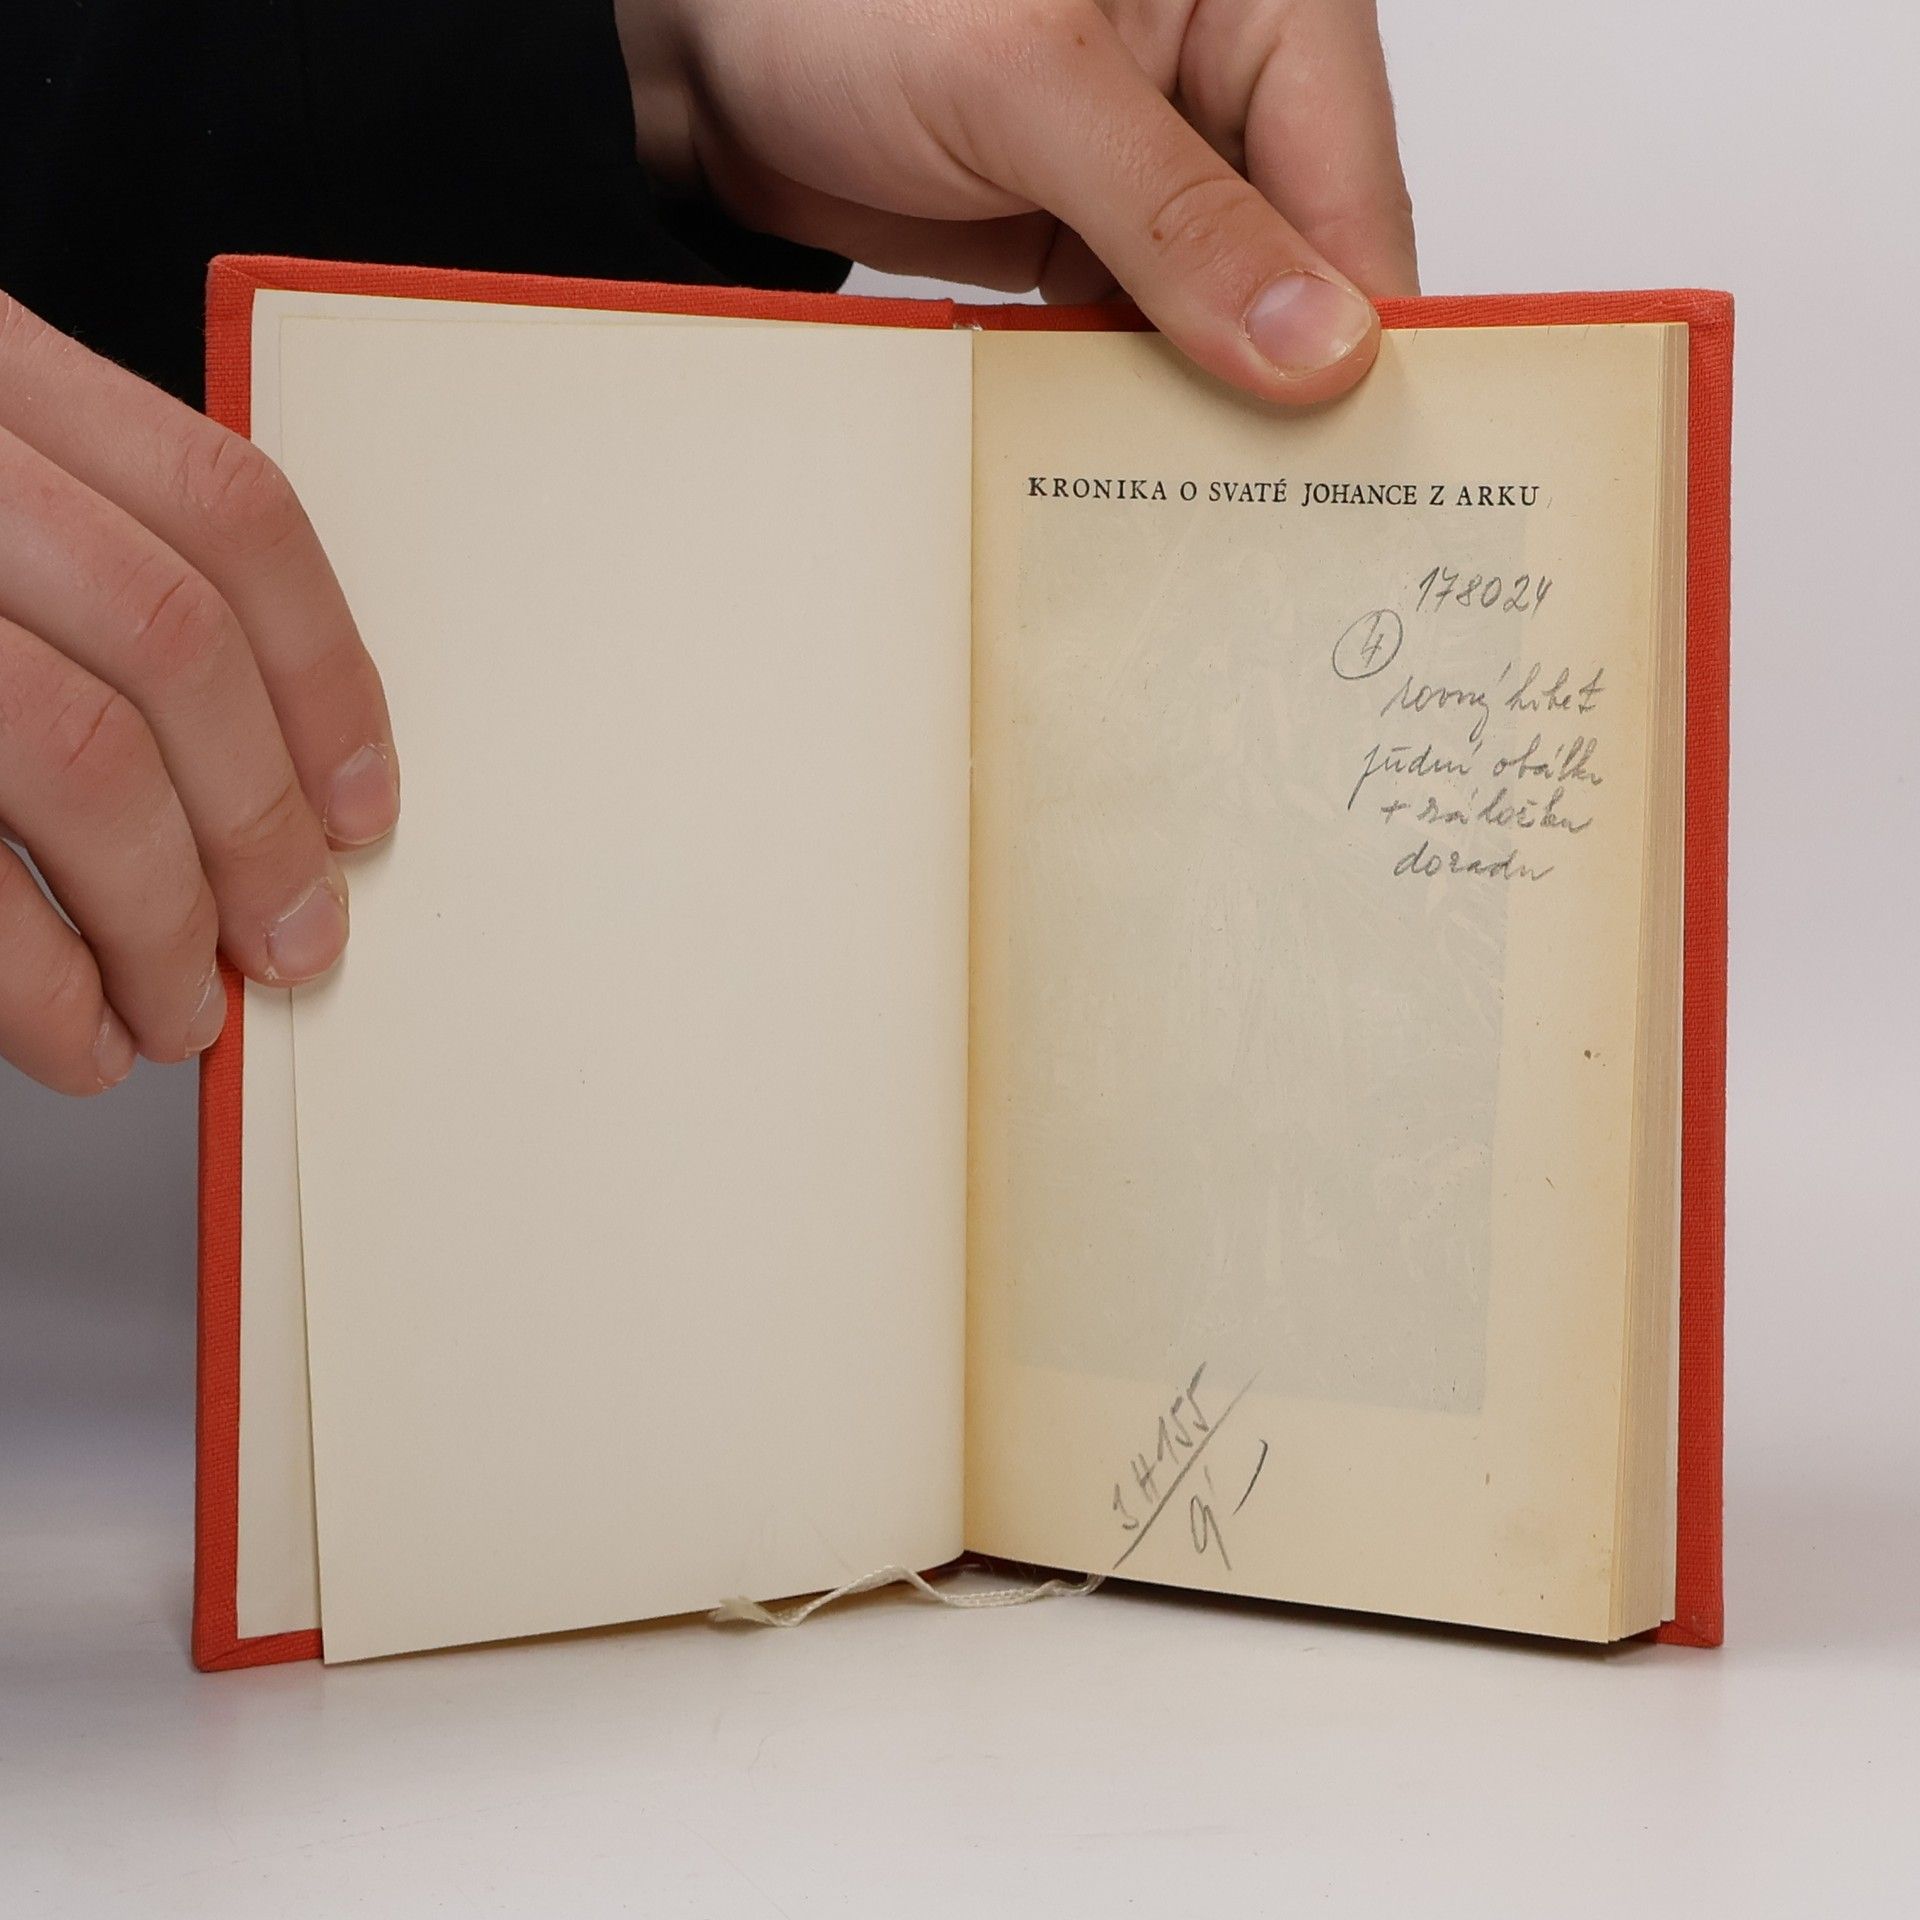 KRONIKA O SVATÉ JOHANCE Z ARKU
178024
4
rovný hřbet
půdní obálku
+ záložku
dozadu
3 H 155